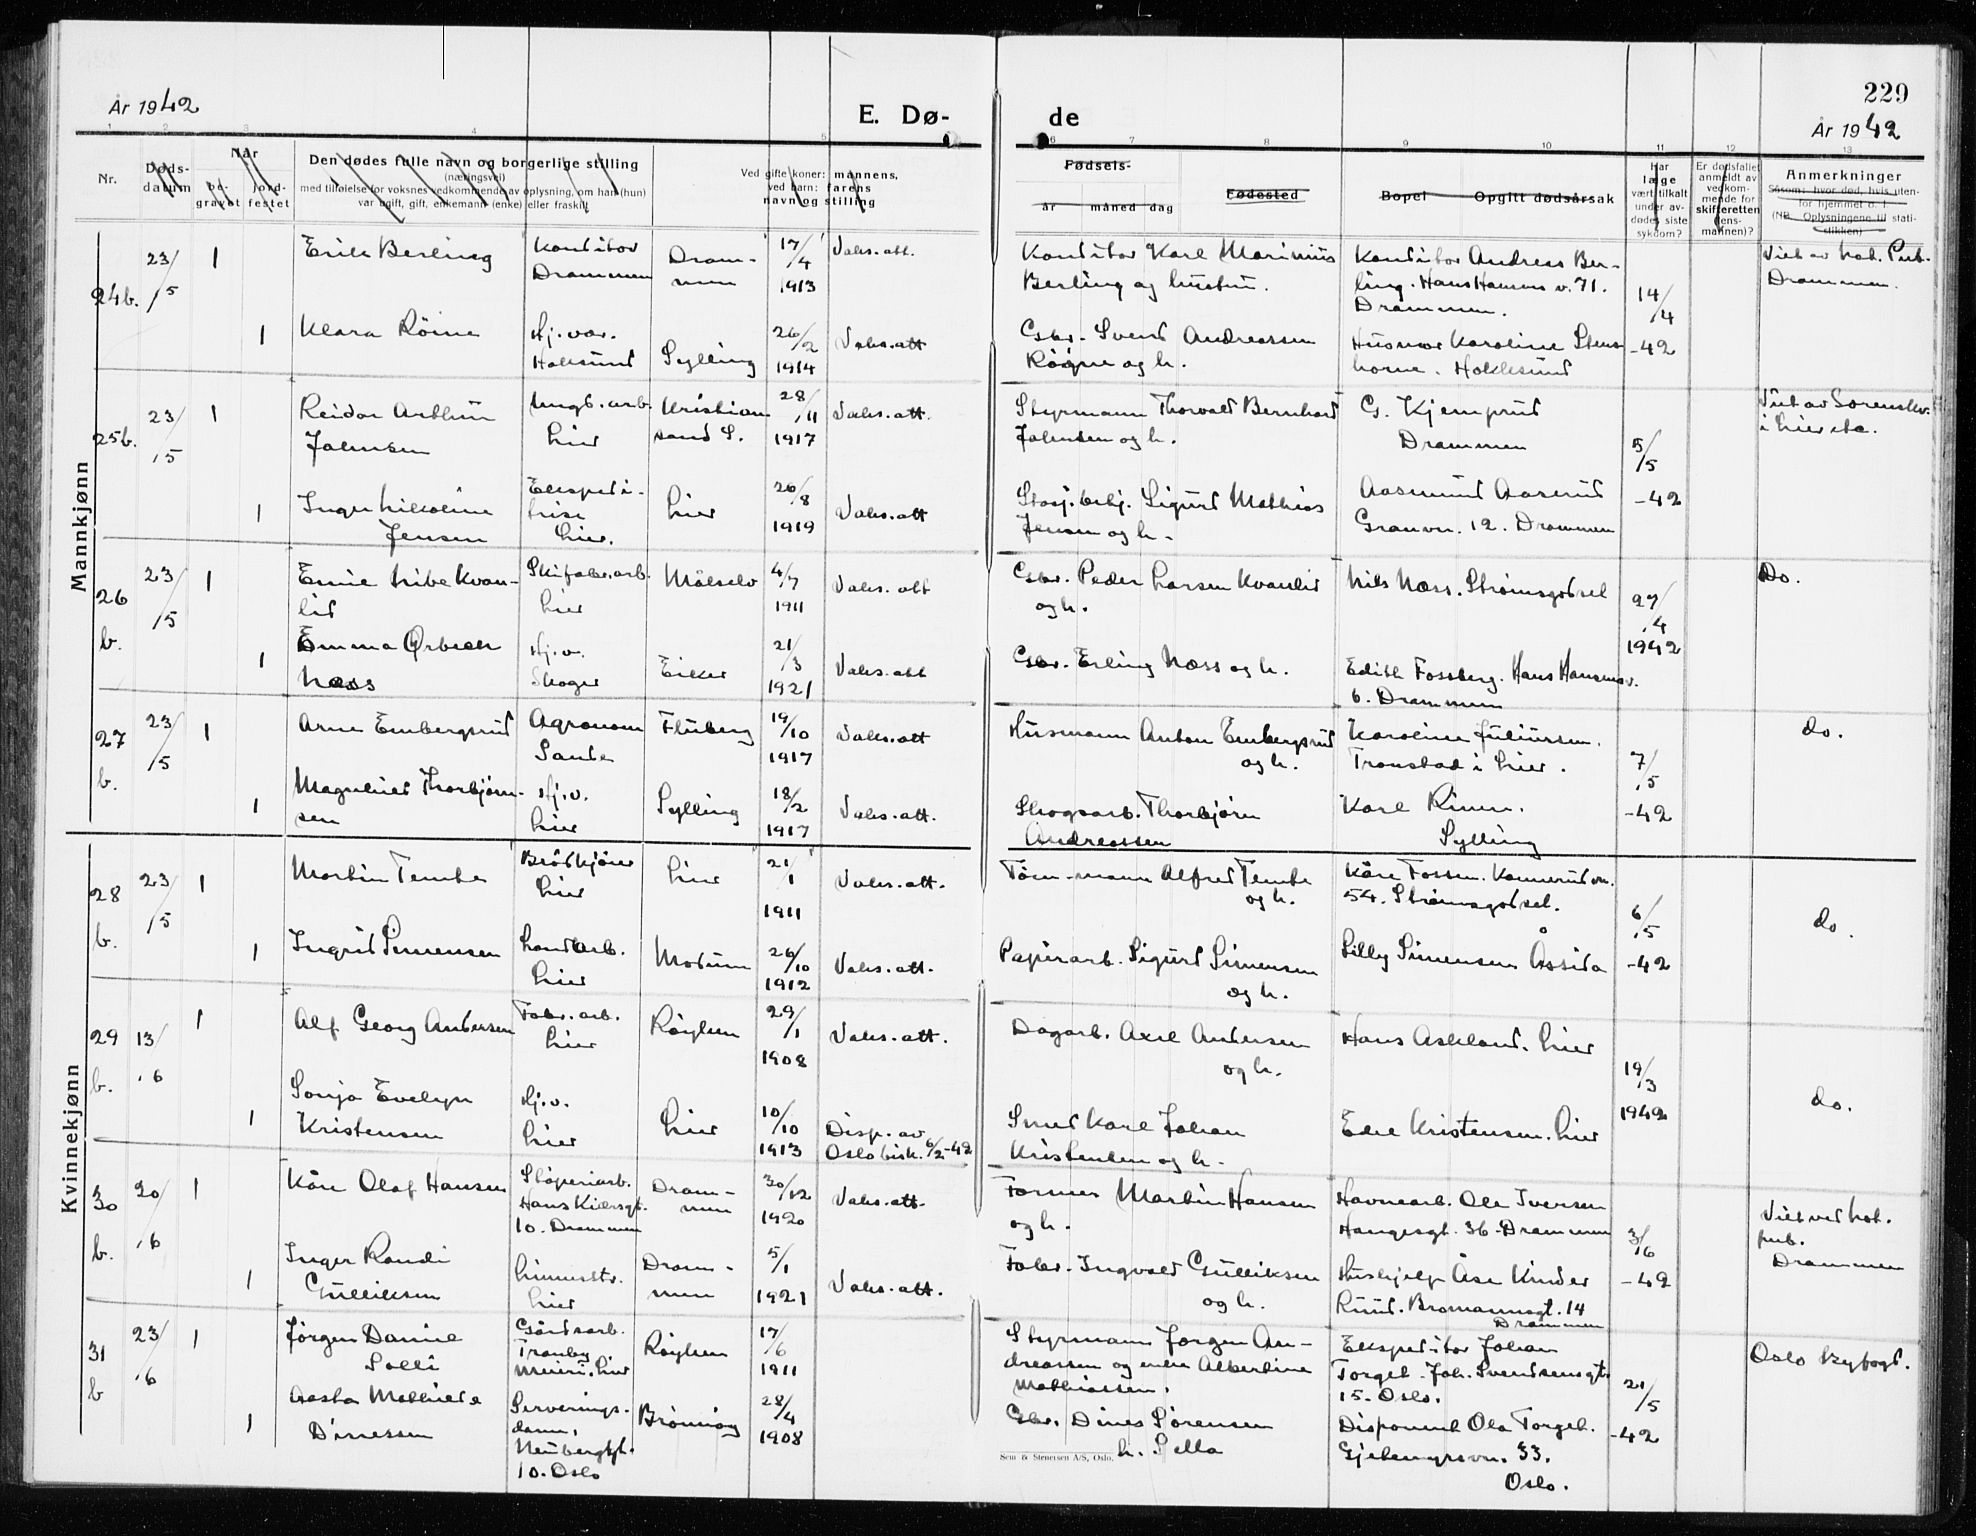 229
År 1942
E. Dø-
de
År 1942
1 2 3 4 5 6 7 8 9 10 11 12 13
Nr.
Døds-
datum
Når
be-
gravet
jord-
festet
Den dødes fulle navn og borgerlige stilling
(næringsvei)
med tilføielse for voksnes vedkommende av oplysning, om han (hun)
var ugift, gift, enkemann (enke) eller fraskilt
Ved gifte koner: mannens,
ved barn: farens
navn og stilling
Fødsels-
år måned dag
Fødested
Bopel
Opgitt dødsårsak
Har
læge
vært tilkalt
under av-
dødes siste
sykdom?
Er dødsfallet
anmeldt av
vedkom-
mende for
skifteretten
(lens-
mannen)?
Anmerkninger
Såsom: hvor død, hvis uten-
for hjemmet o. l.
(NB. Oplysningene til stati-
stikken)
Mannkjønn
24b. 23/5 1 Erik Berling
Konditor
Drammen
Dram-
men
17/4
1913
Vaks. att.
Konditor Karl Marinius
Berling og hustru.
Konditor Andreas Ber-
ling. Hans Hansens v. 71.
Drammen.
14/4
-42
Viet av Not. Pub.
Drammen.
1 Klara Röine
Hj. vær.
Hokksund
Sylling
26/2
1914
Vaks. att
Gbr. Svend Andreassen
Rögne og h.
Husmor Karoline Stens
horne. Hokksund
25b. 23/5 1 Reidar Arthur
Johnsen
lier
Kristian
sand S.
28/11
1917
Vaks. att.
Styrmann Thorvald Bernhard
Johnsen og h.
G. Kjemprud
Drammen
5/5
-42
Viet av Sorenskr.
i Lier etc.
1 Inger Nikoline
Jensen
Ekspedi-
trise
Lier.
Lier
26/8
1919
Vaks. att
Stasj. betj. Sigurd Mathias
Jensen og h.
Aasmund Aaserud
Granvn. 12. Drammen
26
b.
23/5 1 Kvan-
lid
Skifabr. arb.
Lier
Målselv
4/7
1911
Vaks. att
Gbr. Peder Larsen Kvanlid
og h.
Nils Næss. Strømsgodset
27/4
1942
Do.
1 Emma Ørbeck
Næss
Hj. v.
Skoger
Eiker
21/3
1921
Vaks. att
Gbr. Erling Næss og h.
Edith Fossberg. Hans Hansensv.
6. Drammen
27
b.
23/5 1 Arne Embergsrud
Agronom
Sande
Fluberg
19/10
1917
Vaks. att
Husmann Anton Embergsrud
og h.
Karoline Juliussen.
Tronstad i Lier.
7/5
-42
do.
1 Magnhild Thorbjørn-
sen
Hj. v.
Lier
Sylling
18/2
1917
Vaks. att.
Skogsarb. Thorbjørn
Andreassen
Karl Rimm.
Sylling
Kvinnekjønn
28
b.
23/5 1 Martin Tembe
Brödkjörer
Lier
Lier
21/1
1911
Vaks. att.
Töm-mann Alfred Tembe
og h.
Kåre Fossen. Konnerudvn.
54. Strömsgodset.
6/5
-42
do.
1 Ingrid Simensen
Landarb.
Lier
Modum
26/10
1912
Vaks. att.
Papirarb. Sigurd Simensen
og h.
Lilly Simensen Åssida
29
b.
13/6
1 Alf Georg Andersen
Fabr. arb.
Lier
Røyken
29/1
1908
Vaks. att.
Dagarb. Axel Andersen
og h.
Hans Askland. Lier
19/3
1942
do.
1 Sonja Evelyn
Kristensen
Hj. v.
Lier
Lier
10/10
1913
Disp. av
Oslo bisk. 6/2-42
Smed Karl Johan
Kristensen og h.
Kristensen. Lier
30
b.
20/6
1 Kåre Olaf Hansen
Støperiarb.
Hans Kiærsgt.
10. Drammen
Dram-
men
30/12
1920
Vaks. att.
Former Martin Hansen
og h.
Havnearb. Ole Iversen
Haugesgt. 36. Drammen
3/6
-42
Viet ved not.
pub.
Drammen
1 Inger Randi
Gulliksen
Lier
Dram-
men
5/1
1921
Vaks. att.
Fabr. Ingvald Gulliksen
og h.
Hushjelp Åse Kinder
Ruud. Bromannsgt. 14
Drammen
31
b
23/6
1 Jörgen Danine
Solli
Gårdsarb.
Tranby
Meieri. Lier
Røyken
17/6
1911
Styrmann Jørgen An-
dreassen og enke Albertine
Mathiassen.
Ekspeditor Johan
Torget. Joh. Svendsensgt.
15. Oslo.
21/5
-42
Oslo byfogd.
1 Aasta Mathilde
Dinessen
Serverings-
dame,
Neuberggt.
10. Oslo
Brønnøy
28/4
1908
Gbr. Dines Sørensen
h. Sella
Disponent Ola Torget.
Gjetemyrsvn. 33.
Oslo.
Sem & Stenersen A/S, Oslo.